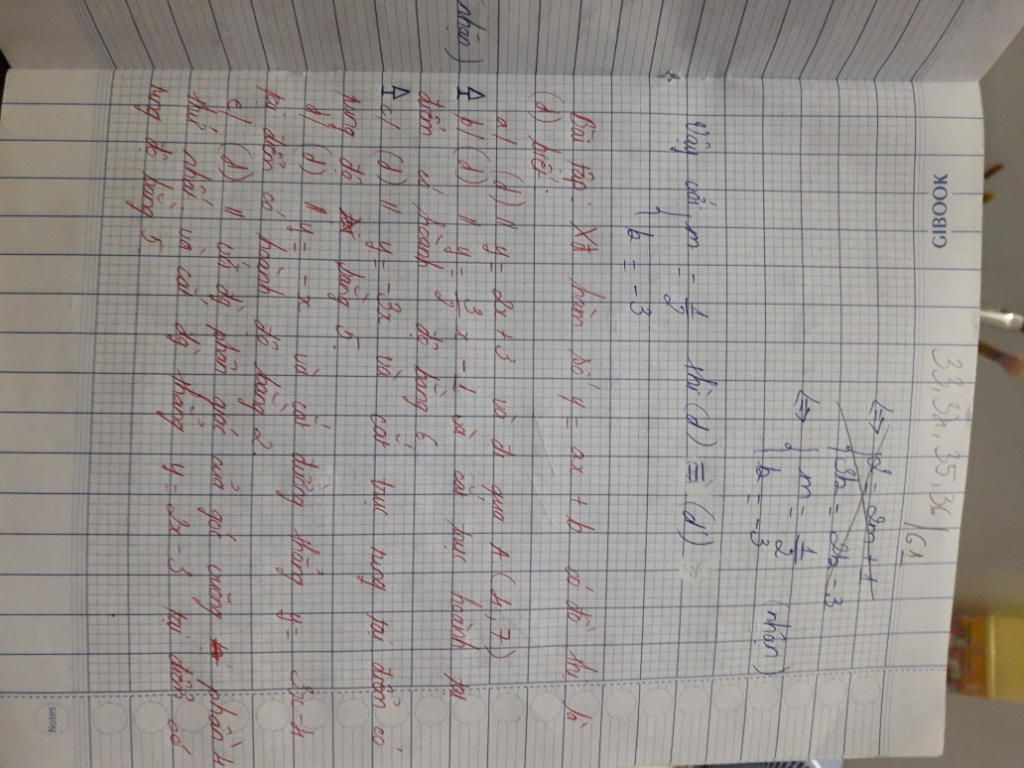 GIBOOK
33, 34, 35, 36 / 61
<=> 2 = 2m + 1
3b = 2b - 3
<=> { m = 1/2
b = -3 (nhận)
Vậy với { m = 1/2 thì (d) ≡ (d')
b = -3
Bài tập: Xđ hàm số y = ax + b có đồ thị là
(d) biết:
a/ (d) // y = 2x + 3 và đi qua A (4; 7)
b/ (d) // y = x - 1 và cắt trục hoành tại
điểm có hoành độ bằng 6.
c/ (d) // y = -3x và cắt trục tung tại điểm có
tung độ bằng 5.
d/ (d) // y = -x và cắt đường thẳng y = 3x - 4
tại điểm có hoành độ bằng 2.
e/ (d) // với đg phân giác của góc vuông phần tư
thứ nhất và cắt đg thẳng y = 2x - 3 tại điểm có
tung độ bằng 5
nhận)
Notes